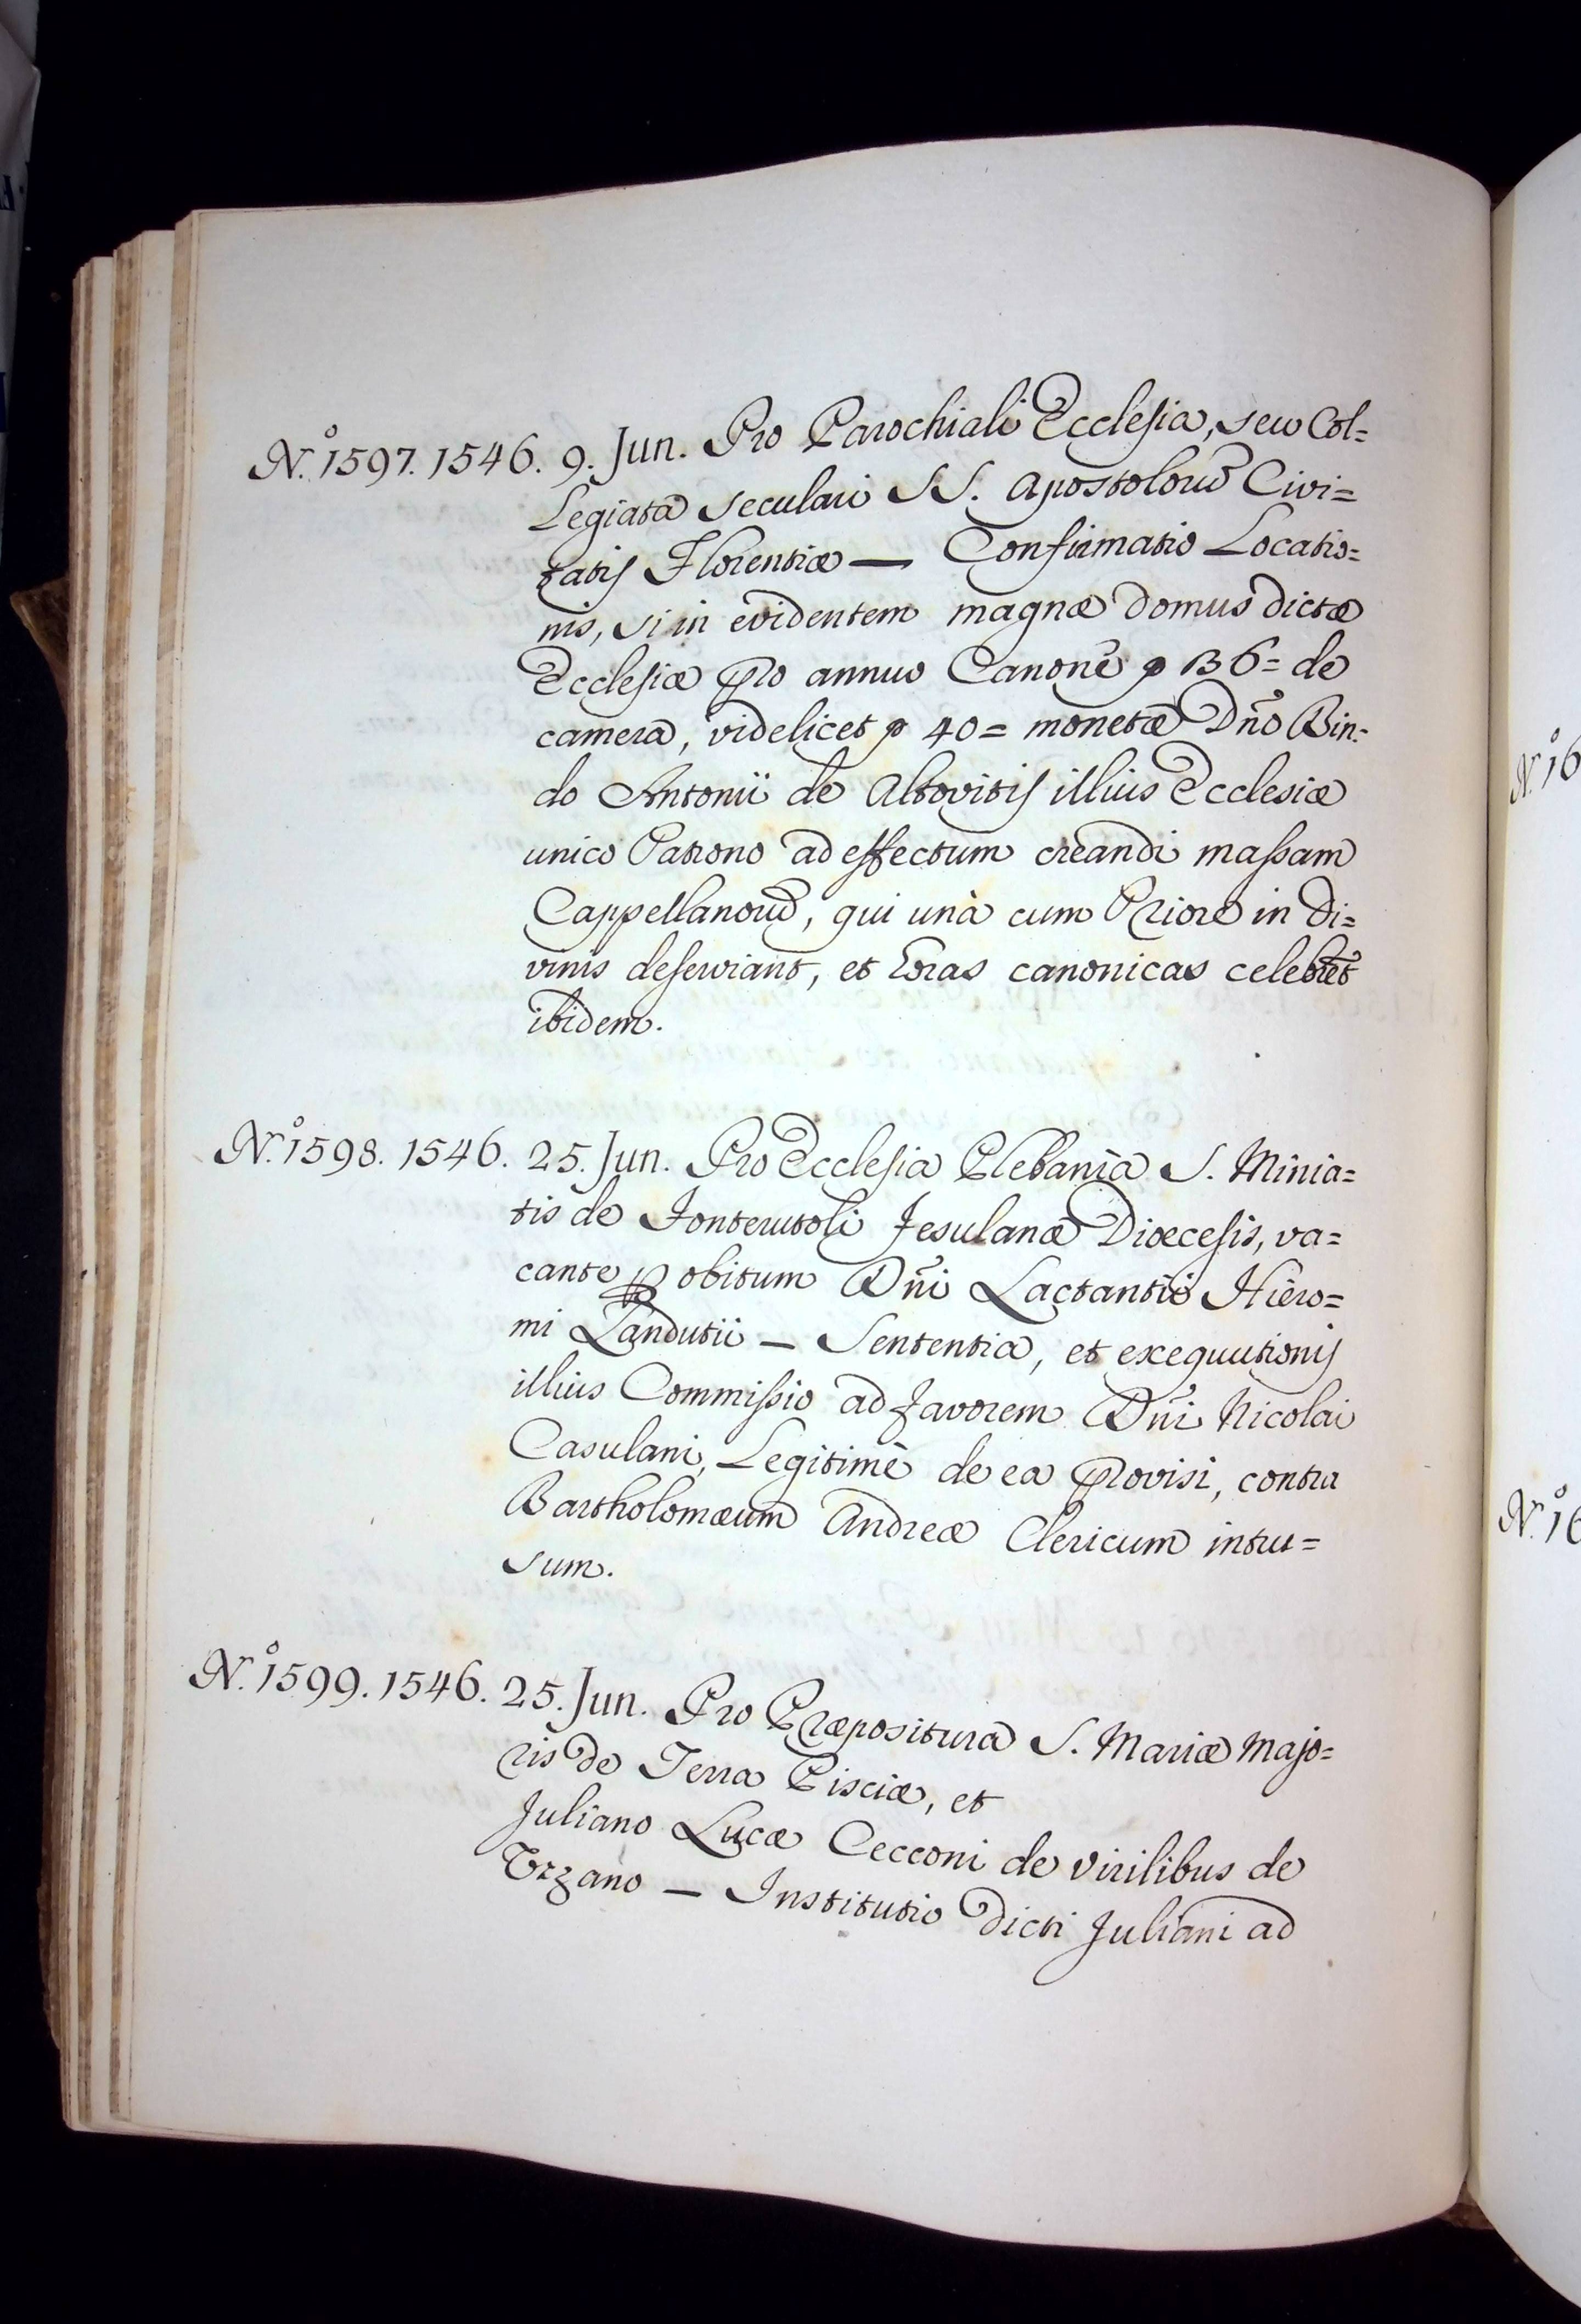 N.º 1597. 1546. 9. Jun. Pro Parochiali Ecclesia, seu Col=
legiata seculari SS. Apostoloru̅ Civi=
tatis Florentiæ — Confirmatio Locatio=
nis, si in evidentem magnæ domus dictæ
Ecclesiæ pro annuo Canone 36= de
camera, videlicet 40= monetæ Dn̅o Bin=
do Antonii de Altovitis illius Ecclesiæ
unico Patrono ad effectum creandi massam
Cappellanoru̅, qui unà cum Priore in di=
vinis deserviant, et horas canonicas celebre̅t
ibidem.
N.º 1598. 1546. 25. Jun. Pro Ecclesia Plebania S. Minia=
tis de Fonterutoli Fesulanæ Diœcesis, va=
cante p obitum Dn̅i Lactantii Hiero=
mi Landutii — Sententia, et exequutionis
illius Commissio ad favorem Dn̅i Nicolai
Casulani, Legitimè de ea provisi, contra
Bartholomæum Andreæ Clericum intru=
sum.
N.º 1599. 1546. 25. Jun. Pro Præpositura S. Mariæ Majo=
ris de Terra Pisciæ, et
Juliano Lucæ Cecconi de Virilibus de
Uzzano — Institutio dicti Juliani ad
N.º 16
N.º 16